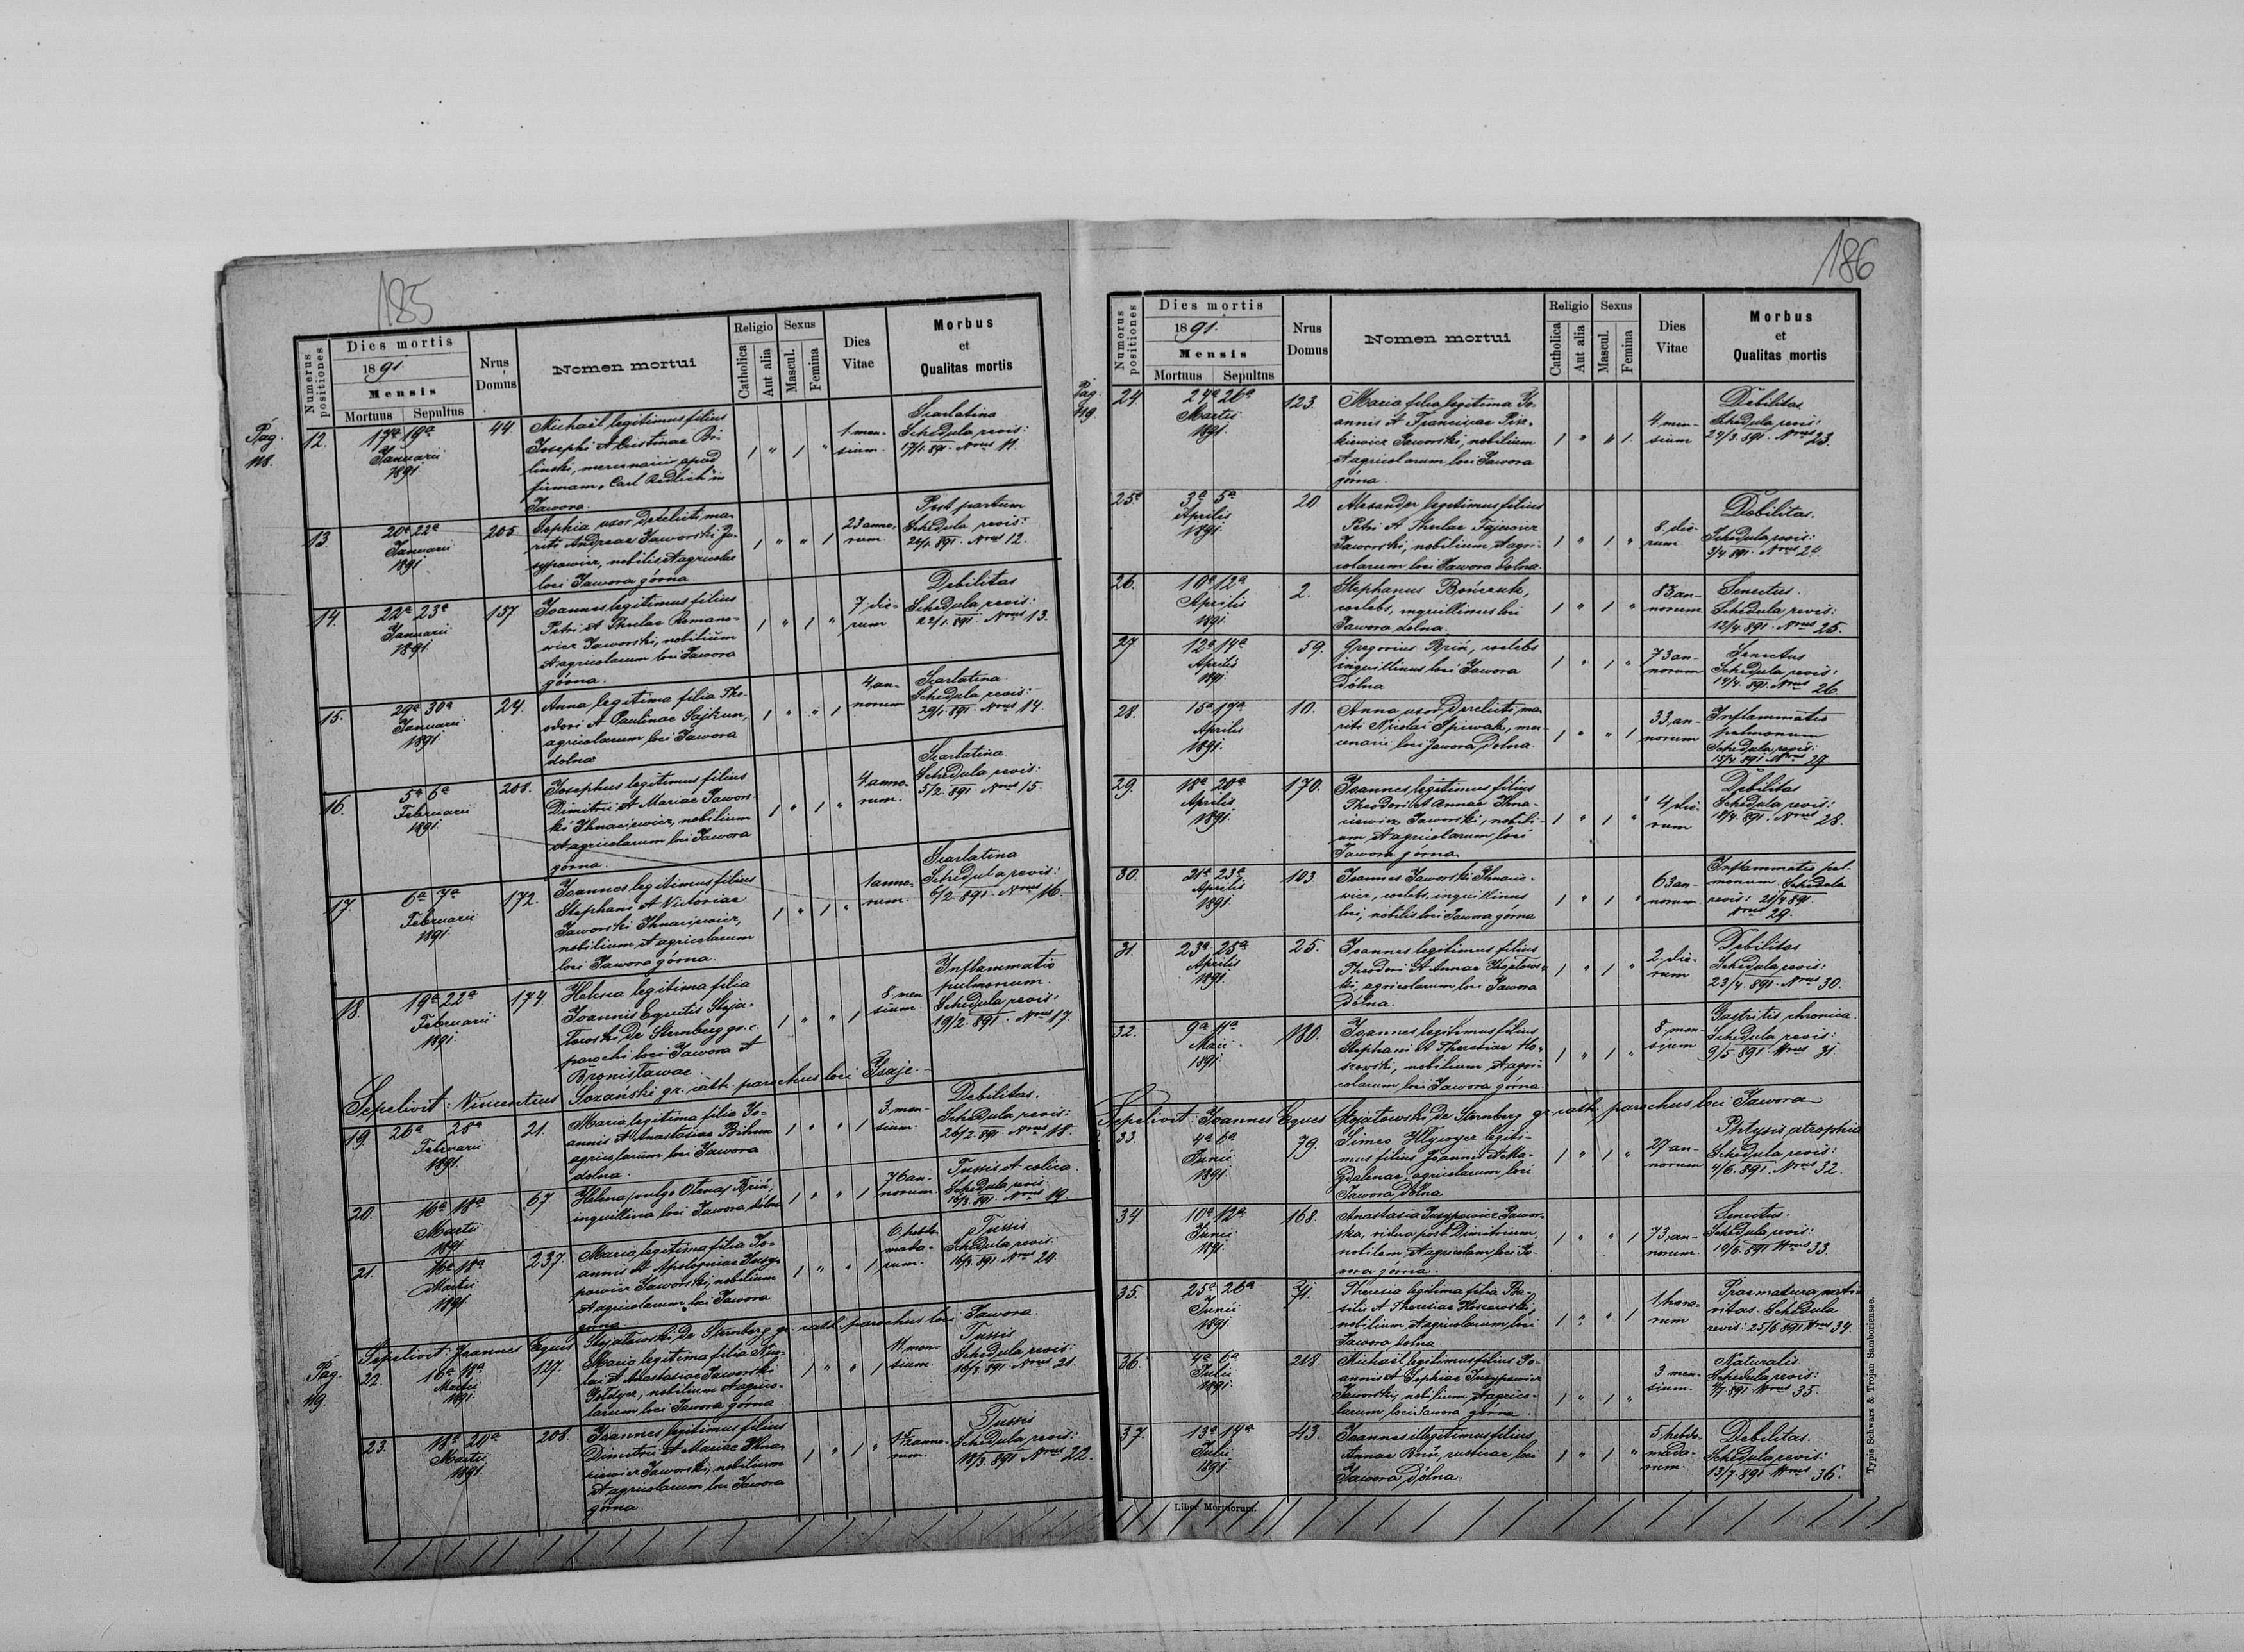 185
Numerus positiones
Dies mortis
1891.
Mensis
Mortuus Sepultus
Nrus Domus
Nomen mortui
Religio
Catholica
Aut alia
Sexus
Mascul.
Femina
Dies Vitae
Morbus et Qualitas mortis
Pag. 118.
12. 17ª 19ª Januarii 1891 44. 1 " 1 " 1 mensium.
Michaël legitimus filius
Josephi et Cristinae
linski, mercenarii apud
firmam „Carl Redlich" in
Jawora.
Scarlatina
Schedula revis:
17/1. 891. Nrus 11.
13. 20ª 22ª Januarii 1891 205. 1 " " 1 23 annorum.
Sophia uxor derelicti ma-
riti Andreae Jaworski Jo-
sypowicz, nobilis et agricolae
loci Jawora górna.
Post partum
Schedula revis:
/1. 891. Nrus 12.
14. 22ª 23ª Januarii 1891 157. 1 " 1 " 7 dierum
Joannes legitimus filius
Petri et Theclae Romano-
wicz Jaworski, nobilium
et agricolarum loci Jawora
górna.
Debilitas
Schedula revis:
22/1. 891. Nrus 13.
15. 29ª 30ª Januarii 1891 24. 1 " " 1 4 annorum
Anna legitima filia The-
odori et Paulinae Sajkun,
agricolarum loci Jawora
dolna
Scarlatina.
Schedula revis:
29/1. 891. Nrus 14.
16. 5ª 6ª Februarii 1891 208. 1 " 1 " 4 annorum.
Josephus legitimus filius
Dimitrii et Mariae Jawors-
ki Ihnaciewicz, nobilium
et agricolarum loci Jawora
górna.
Scarlatina
Schedula revis:
5/2. 891. Nrus 15.
17. 6ª 7ª Februarii 1891 172. 1 " 1 " 1 annorum.
Joannes legitimus filius
Stephani et Victoriae
Jaworski Ihnaciewicz,
nobilium et agricolarum
loci Jawora górna.
Scarlatina
Schedula revis:
6/2. 891. Nrus 16.
18. 19ª 22ª Februarii 1891 174. 1 " " 1 8 mensium.
Helena legitima filia
Joannis Equitis Stoja-
łowski de Sternberg gr. c.
parochi loci Jawora et
Bronisławae.
Inflammatio
pulmonum.
Schedula revis:
19/2. 891. Nrus 17.
Sepelivit: Vincentius Sozański gr. cath. parochus loci Ysaje.
19. 26ª 28ª Februarii 1891 21. 1 " " 1 3 mensium.
Maria legitima filia Jo-
annis et Anastasiae Bihun
agricolarum loci Jawora
dolna.
Debilitas.
Schedula revis:
26/2. 891. Nrus 18.
20. 16ª 18ª Martii 1891 67. 1 " " 1 76 annorum.
Helena (vulgo Olena) Briń,
inquillina loci Jawora dólna
Tussis et colica.
Schedula revis:
16/3. 891. Nrus 19.
21. 16ª 18ª Martii 1891 237. 1 " " 1 6 hebdomadarum.
Maria legitima filia Jo-
annis et Apoloniae Jusy-
powicz Jaworski, nobilium
et agricolarum loci Jawora
górna
Tussis
Schedula revis:
16/3. 891. Nrus 20.
Sepelivit: Joannes Eques Stojałowski de Sternberg gr. cath. parochus loci Jawora.
Pag. 119.
22. 16ª 18ª Martii 1891 127. 1 " " 1 11 mensium
Maria legitima filia Nico-
lai et Anastasiae Jaworski
nobilium et agrico-
larum loci Jawora górna
Tussis
Schedula revis:
16/3. 891 Nrus 21.
23. 18ª 20ª Martii 1891. 208. 1 " 1 " 1 1/2 annorum.
Joannes legitimus filius
Dimitrii et Mariae Ihna-
ciewicz Jaworski, nobilium
et agricolarum loci Jawora
górna.
Tussis
Schedula revis:
18/3. 891 Nrus 22.
186
Numerus positiones
Dies mortis
1891.
Mensis
Mortuus Sepultus
Nrus Domus
Nomen mortui
Religio
Catholica
Aut alia
Sexus
Mascul.
Femina
Dies Vitae
Morbus et Qualitas mortis
Pag. 119
24 24ª 26ª Martii 1891 123. 1 " " 1 4 mensium
Maria filia legitima Jo-
annis et Franciscae Pis-
kiewicz Jaworski, nobilium
et agricolarum loci Jawora
górna.
Debilitas
Schedula revis:
24/3. 891. Nrus 23.
25. 3ª 5ª Aprilis 1891 20 1 " 1 " 8 dierum.
Alexander legitimus filius
Petri et Theclae Fajewicz
Jaworski, nobilium et agri-
colarum loci Jawora dolna.
Debilitas.
Schedula revis:
3/4. 891. Nrus 24.
26. 10ª 12ª Aprilis 1891 2. 1 " 1 " 83 annorum
Stephanus
coelebs, inquillinus loci
Jawora dolna.
Senectus.
Schedula revis:
12/4. 891. Nrus 25.
27. 12ª 14ª Aprilis 1891 59. 1 " 1 " 73 annorum
Gregorius Briń, coelebs
inquillinus loci Jawora
Dólna
Senectus
Schedula revis:
14/4. 891. Nrus 26.
28. 15ª 17ª Aprilis 1891. 10. 1 " " 1 33 annorum
Anna uxor derelicti ma-
riti Nicolai Spiwak, mer-
cenarii loci Jawora Dolna.
Inflammatio
pulmonum
Schedula revis:
15/4. 891. Nrus 27.
29. 18ª 20ª Aprilis 1891. 170. 1 " 1 " 4 dierum
Joannes legitimus filius
Theodori et Annae Ihna-
ciewicz Jaworski, nobili-
um et agricolarum loci
Jawora górna
Debilitas
Schedula revis:
18/4. 891. Nrus 28.
30. 21ª 23ª Aprilis 1891 103 1 " 1 " 63 annorum.
Joannes Jaworski Ihnacie-
wicz, coelebs, inquilinus
loci, nobilis loci Jawora górna
Inflammatio pul-
monum. Schedula
revis: 21/4 891
Nrus 29.
31. 23ª 25ª Aprilis 1891. 25. 1 " 1 " 2 dierum
Joannes legitimus filius
Theodori et Annae
agricolarum loci Jawora
Dólna.
Debilitas
Schedula revis:
23/4. 891. Nrus 30.
32. 9ª 11ª Maii. 1891 180. 1 " 1 " 8 mensium
Joannes legitimus filius
Stephani et Theresiae Ho-
szowski, nobilium et agri-
colarum loci Jawora górna.
Gastritis chronica.
Schedula revis:
9/5. 891. Nrus 31.
Sepelivit: Joannes Eques Stojałowski de Sternberg gr. cath. parochus loci Jawora
33. 4ª 6ª Junii 1891. 79. 1 " 1 " 27 annorum
Simeo legiti-
mus filius Joannis et Ma-
gdalenae, agricolarum loci
Jawora Dólna
Phtysis atrophia
Schedula revis:
4/6. 891. Nrus 32.
34 10ª 12ª Junii 1891. 168. 1 " " 1 73 annorum.
Anastasia Jusypowicz Jawor-
ska, vidua post Dimitrium,
nobilem et agricolam loci Ja-
wora górna.
Senectus.
Schedula revis:
10/6. 891 Nrus 33.
35. 25ª 26ª Junii 1891 71. 1 " " 1 1 horarum
Theresia legitima filia Ba-
silii et Theresiae
nobilium et agricolarum loci
Jawora dolna
Praematura nati-
vitas. Schedula
revis: 25/6 891 Nrus 34.
36. 4ª 6ª Julii 1891. 218. 1 " 1 " 3 mensium.
Michaël legitimus filius Jo-
annis et Sophiae Jusypowicz
Jaworski, nobilium et agrico-
larum loci Jawora górna.
Naturalis.
Schedula revis:
4/7. 891 Nrus 35.
37. 13ª 14ª Julii 1891. 43. 1 " 1 " 5 hebdomadarum.
Joannes illegitimus filius
Annae Briń, rusticae loci
Jawora Dólna.
Debilitas.
Schedula revis:
13/7. 891 Nrus 36.
Liber Mortuorum.
Typis Schwarz & Trojan Samboriensae.